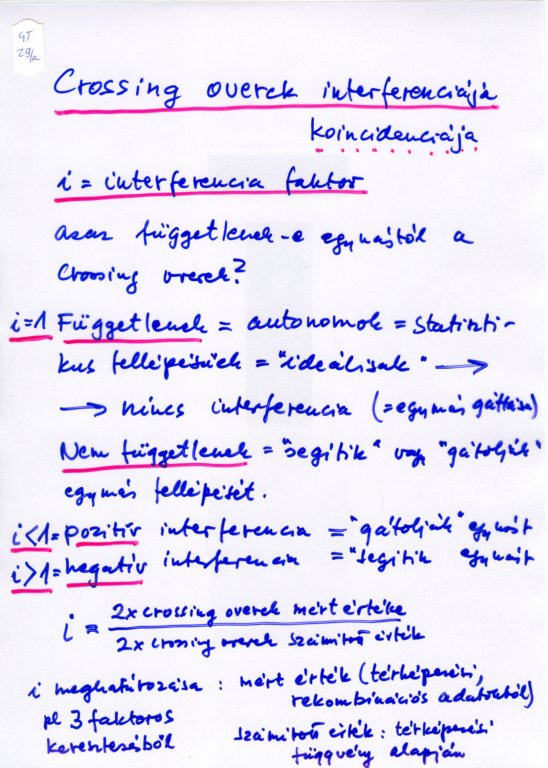 GT
29/a
Crossing overek interferenciája
koincidenciája
i = interferencia faktor
azaz függetlenek-e egymástól a
Crossing overek?
i=1 Függetlenek = autonomok = statiszti-
kus fellépésűek = "ideálisak" →
→ nincs interferencia (=egymás gátlása)
Nem függetlenek = "segítik" vagy "gátolják"
egymás fellépését.
i<1 = pozitív interferencia = "gátolják" egymást
i>1 = negatív interferencia = "segítik egymást
i = 2x crossing overek mért értéke
2x crossing overek számított érték
i meghatározása : mért érték (térképezési,
rekombinációs adatokból)
pl 3 faktoros
keresztezésből
számított érték : térképezési
függvény alapján